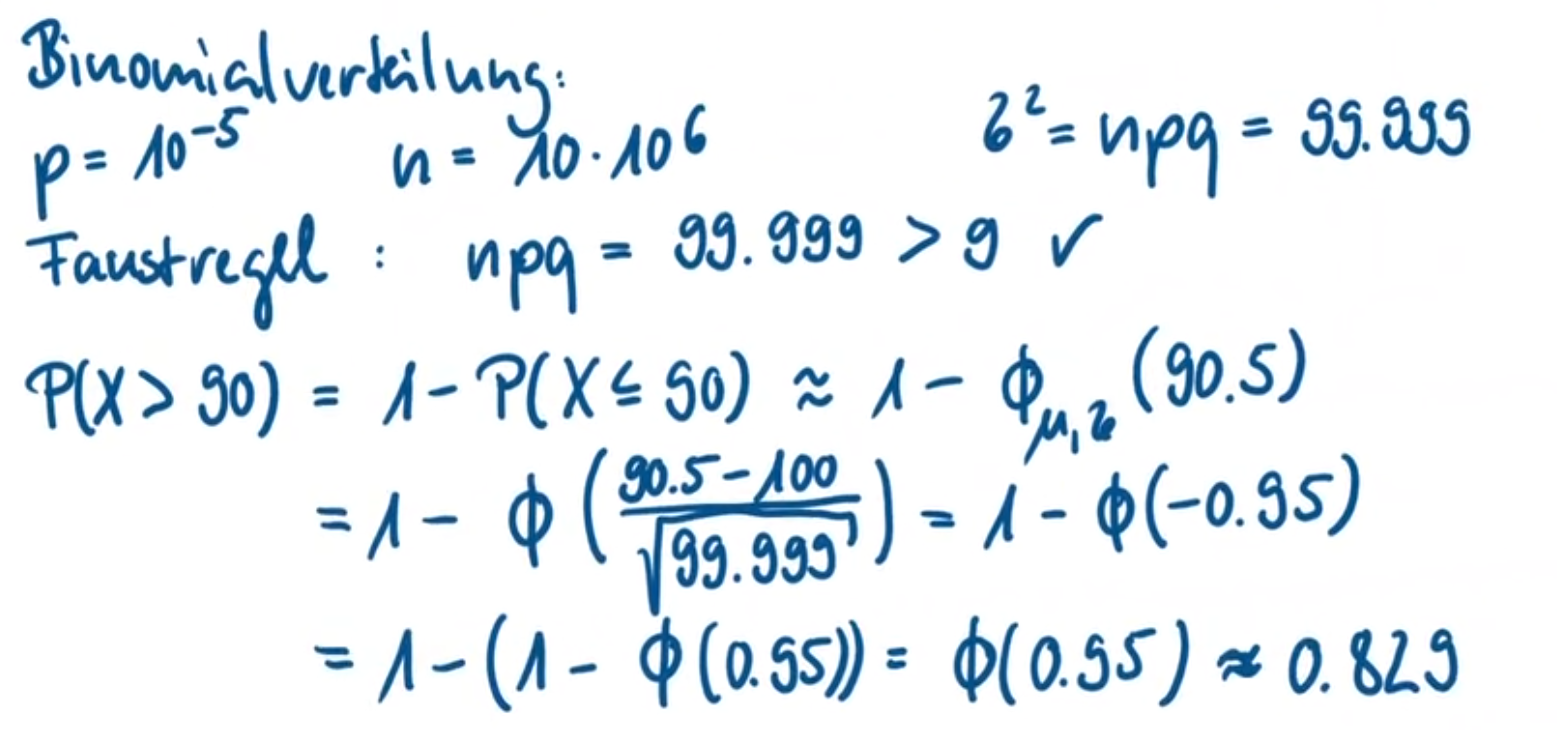 Binomialverteilung:
p = 10⁻⁵ n = 10·10⁶ σ² = npq = 99.999
Faustregel : npq = 99.999 > 9 ✓
P(X > 90) = 1 - P(X ≤ 90) ≈ 1 - ϕ_μ,σ (90.5)
= 1 - ϕ ( (90.5 - 100) / √99.999 ) = 1 - ϕ(-0.95)
= 1 - (1 - ϕ(0.95)) = ϕ(0.95) ≈ 0.829